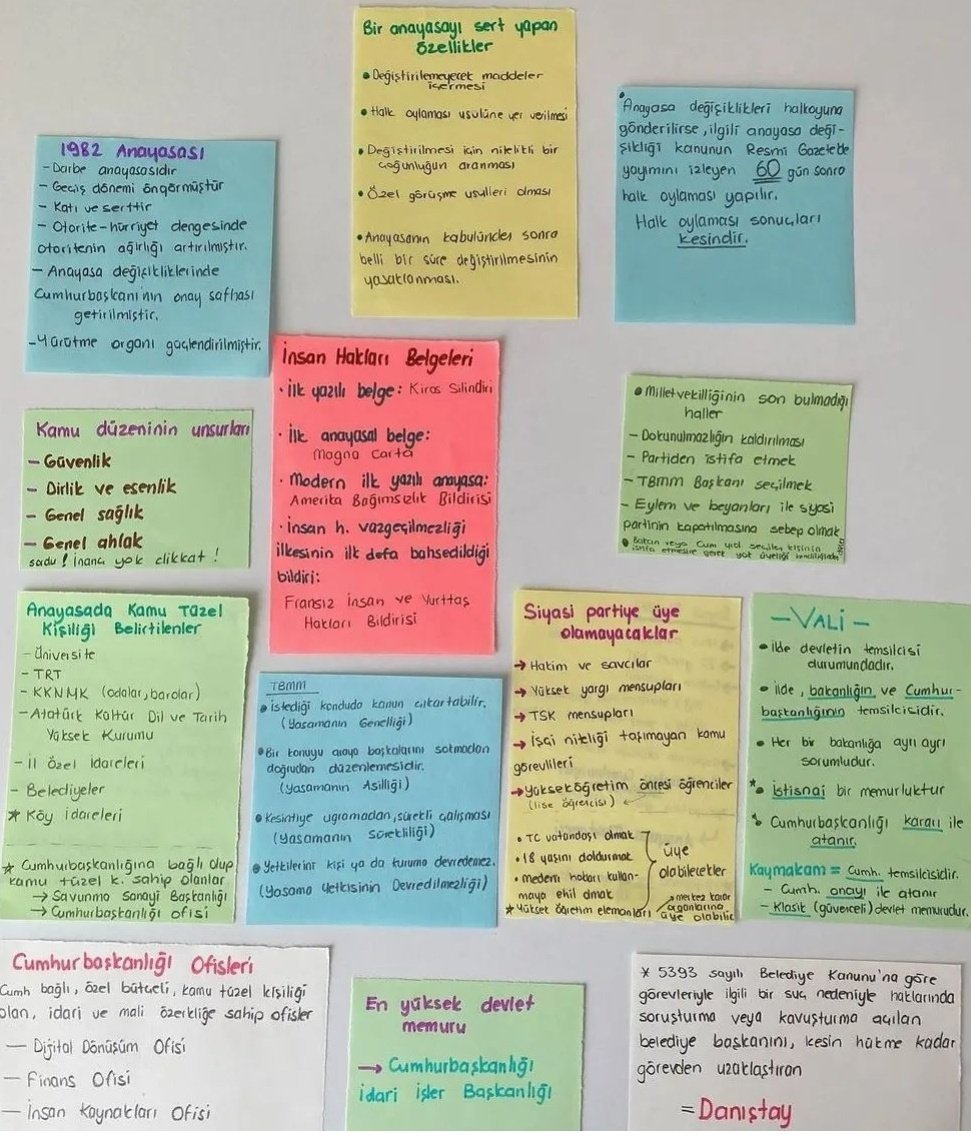 Bir anayasayı sert yapan
özellikler
• Değiştirilemeyecek maddeler
içermesi
• Halk oylaması usulüne yer verilmesi
• Değiştirilmesi için nitelikli bir
çoğunluğun aranması
• Özel görüşme usulleri olması
• Anayasanın kabulünden sonra
belli bir süre değiştirilmesinin
yasaklanması.
• Anayasa değişiklikleri halkoyuna
gönderilirse, ilgili anayasa deği-
şikliği kanunun Resmi Gazete'de
yayımını izleyen 60 gün sonra
halk oylaması yapılır.
Halk oylaması sonuçları
kesindir.
1982 Anayasası
- Darbe anayasasıdır
- Geçiş dönemi öngörmüştür
- Katı ve serttir
- Otorite-hürriyet dengesinde
otoritenin ağırlığı artırılmıştır.
- Anayasa değişikliklerinde
Cumhurbaşkanı'nın onay safhası
getirilmiştir.
- Yürütme organı güçlendirilmiştir.
İnsan Hakları Belgeleri
• İlk yazılı belge: Kiros Silindiri
• İlk anayasal belge:
Magna Carta
• Modern ilk yazılı anayasa:
Amerika Bağımsızlık Bildirisi
• İnsan h. vazgeçilmezliği
ilkesinin ilk defa bahsedildiği
bildiri:
Fransız İnsan ve Yurttaş
Hakları Bildirisi
• Milletvekilliğinin son bulmadığı
haller
- Dokunulmazlığın kaldırılması
- Partiden istifa etmek
- TBMM Başkanı seçilmek
- Eylem ve beyanları ile siyasi
partinin kapatılmasına sebep olmak
• Bakan veya Cum yrd seçilen kişinin
istifa etmesine gerek yok üyeliği
Kamu düzeninin unsurları
- Güvenlik
- Dirlik ve esenlik
- Genel sağlık
- Genel ahlak
! inanç yok dikkat !
Anayasada Kamu Tüzel
Kişiliği Belirtilenler
- Üniversite
- TRT
- KKNMK (odalar, barolar)
- Atatürk Kültür Dil ve Tarih
Yüksek Kurumu
- İl Özel İdareleri
- Belediyeler
* Köy idareleri
* Cumhurbaşkanlığına bağlı olup
kamu tüzel k. sahip olanlar
→ Savunma Sanayi Başkanlığı
→ Cumhurbaşkanlığı ofisi
TBMM
• İstediği konuda kanun çıkartabilir.
(Yasamanın Genelliği)
• Bir konuyu araya başkalarını sokmadan
doğrudan düzenlemesidir.
(Yasamanın Asilliği)
• Kesintiye uğramadan, sürekli çalışması
(Yasamanın Sürekliliği)
• Yetkilerini kişi ya da kuruma devredemez.
(Yasama Yetkisinin Devredilmezliği)
Siyasi partiye üye
olamayacaklar
→ Hakim ve savcılar
→ Yüksek yargı mensupları
→ TSK mensupları
→ İşçi niteliği taşımayan kamu
görevlileri
→ Yükseköğretim öncesi öğrenciler
(lise öğrencisi)
• TC vatandaşı olmak
• 18 yaşını doldurmak
• medeni hakları kullan-
maya ehil olmak
üye
olabilecekler
* Yüksek öğretim elemanları
→ merkez karar
organlarına
üye olabilir
- VALİ -
• İlde devletin temsilcisi
durumundadır.
• İlde, bakanlığın ve Cumhur-
başkanlığının temsilcisidir.
• Her bir bakanlığa ayrı ayrı
sorumludur.
* • İstisnai bir memurluktur
• Cumhurbaşkanlığı kararı ile
atanır.
Kaymakam = Cumh. temsilcisidir.
- Cumh. onayı ile atanır
- Klasik (güvenceli) devlet memurudur.
Cumhurbaşkanlığı Ofisleri
Cumh bağlı, özel bütçeli, kamu tüzel kişiliği
olan, idari ve mali özerkliğe sahip ofisler
— Dijital Dönüşüm Ofisi
— Finans Ofisi
— İnsan Kaynakları Ofisi
En yüksek devlet
memuru
→ Cumhurbaşkanlığı
idari işler Başkanlığı
* 5393 sayılı Belediye Kanunu'na göre
görevleriyle ilgili bir suç nedeniyle haklarında
soruşturma veya kavuşturma açılan
belediye başkanını, kesin hükme kadar
görevden uzaklaştıran
= Danıştay